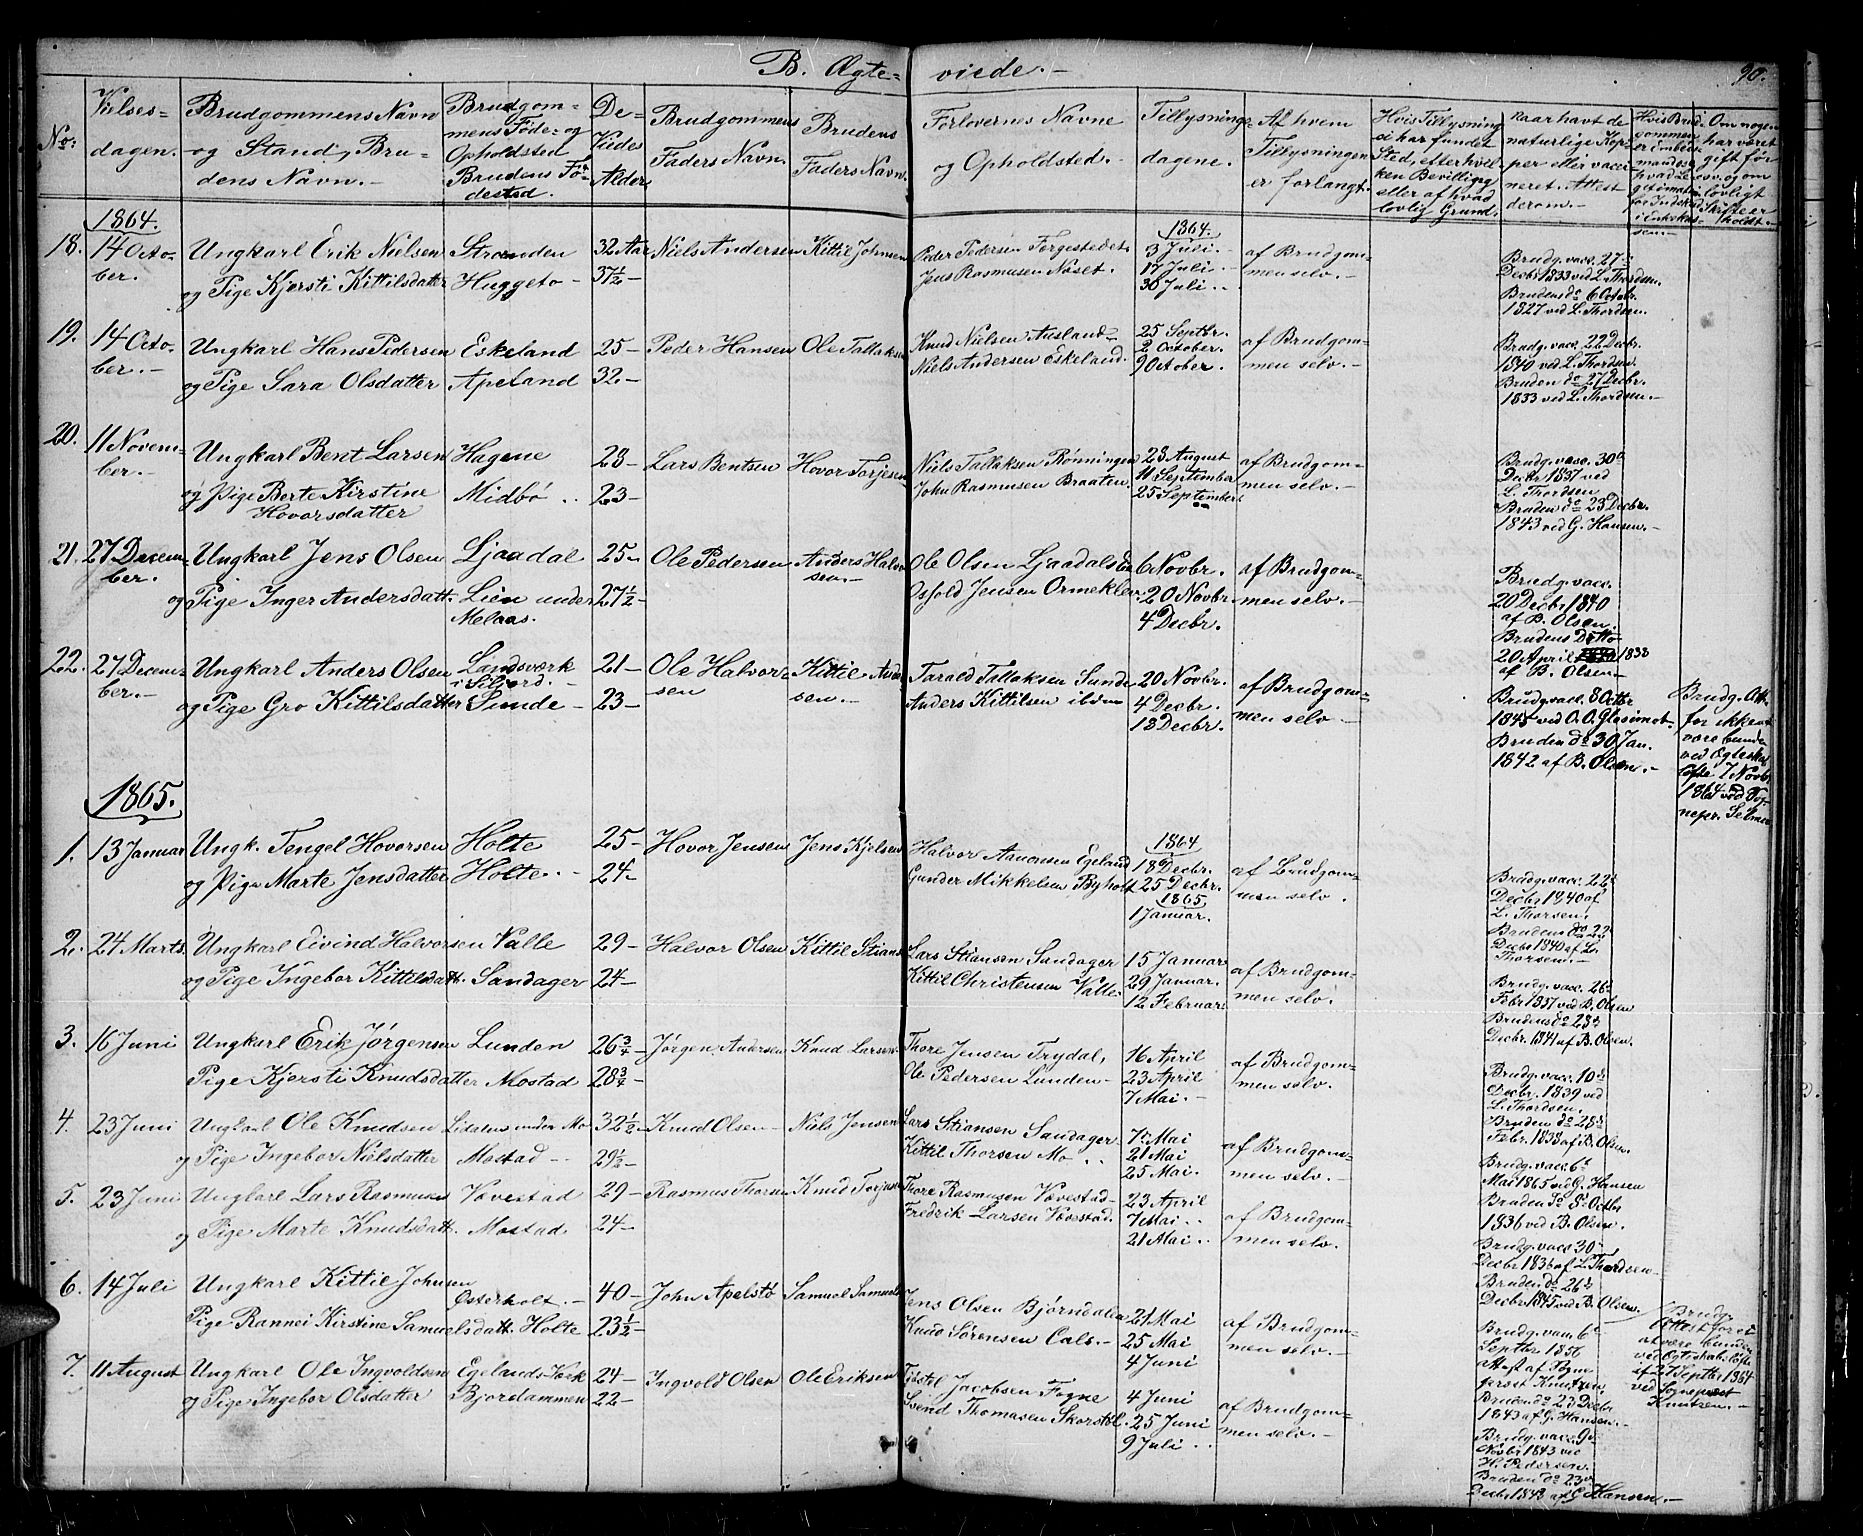 B. Ægte= viede.-
90.
No:
Vielses=
dagen.
Brudgommens Navn
og Stand, Bru=
dens Navn.-
Brudgom=
mens Føde- og
Opholdsted
Brudens Fø=
dested.
De
Viedes
Alder
Brudgommens
Faders Navn.
Brudens
Faders Navn.
Forlovernes Navne
og Opholdsted.-
Tillysnings=
dagene.
Af hvem
Tillysningen
er forlangt.
Hvis Tillysning
ei har fundet
Sted, efter hvil=
ken Bevilling
eller af hvad
lovlig Grund.
Naar havt de
naturlige Kop=
per eller vacci=
neret. Attest
derom.-
Om nogen
har været
gift før
og om
lovligt
Skifte er
holdt.
1864.
18. 14 Octo=
ber.
Ungkarl Erik Nielsen
og Pige Kjersti Kittilsdatter
Stranden
Huggeto -
32 Aar
37½ -
Niels Andersen
Kittil Johnsen
Peder Pedersen Fergestedet
Jens Rasmusen Næset.
1864.
3 Juli
17 Juli
30 Juli
af Brudgom=
men selv.-
Brudg. vacc. 27
Decbr 1833 ved L. Thordsen.
Brudens do 6 Octobr.
1827 ved L. Thordsen.
19. 14 Octo=
ber.-
Ungkarl Hans Pedersen
og Pige Sara Olsdatter
Eskeland
Apeland
25 -
32 -
Peder Hansen
Ole Tallaksen
Knud Nielsen Ausland
Niels Andersen Eskeland.
25 Septbr.
2 October.
9 October.
af Brudgom=
men selv.-
Brudg. vacc. 22 Decbr.
1840 ved L. Thordsen.
Bruden do 27 Decbr.
1833 ved L. Thordsen.-
20. 11 Novem=
ber.-
Ungkarl Bent Larsen
og Pige Berte Kirstine
Hovorsdatter
Hagene
Midbø
28 -
23 -
Lars Bentsen
Hovor Torjesen
Niels Tallaksen Rønningen
John Rasmusen Braaten
28 August
11 September
25 September
af Brudgom=
men selv.-
Brudg. vacc. 30
Decbr 1837 ved
L. Thordsen
Bruden do 23 Decbr.
1843 ved G. Hansen.-
21. 27 Decem=
ber.
Ungkarl Jens Olsen
og Pige Inger Andersdatt.
Ljaadal
Lien under
Melaas.
25 -
27½ -
Ole Pedersen
Anders Halvor
sen.-
Ole Olsen Ljaadals
Osfold Jensen Ormeklev
6 Novbr.
20 Novbr.
4 Decbr.
af Brudgom=
men selv.-
Brudg. vacc.
20 Decbr 1840
af B. Olsen.
Brudens Ditto
20 April 1838
af B. Olsen.-
22. 27 Decem
ber.-
Ungkarl Anders Olsen
og Pige Gro Kittilsdatter
Landsværk
i Siljord.-
Sunde -
21 -
23 -
Ole Halvor
sen
Kittil And
sen.-
Tarald Tallaksen Sunde
Anders Kittilsen ibidem
20 Novbr.
4 Decbr.
18 Decbr.
af Brudgom=
men selv.-
Brudg. vacc. 8 Octbr
1845 ved O. O. Glasimot.
Bruden do 30 Jan.
1842 af B. Olsen.-
Brudg. Att.
for ikke at
være bunden
ved Ægteskab
løfte 7 Novbr
1864 ved Sog=
nepr. Selmer
1865.
1. 13 Januar
Ungk. Tengel Hovorsen
og Pige Marte Jensdatter
Holte
Holte
25 -
24 -
Hovor Jensen
Jens Kjelsen
Halvor Aanonsen Egeland
Gunder Mikkelsen Byholt
1864
18 Decbr.
25 Decbr.
1865
1 Januar.
af Brudgom=
men selv.
Brudg. vacc. 22
Decbr 1840 af
L. Thorsen.
Brudens do 22
Decbr 1840 af L.
Thorsen.-
2. 24 Marts.
Ungkarl Eivind Halvorsen
og Pige Ingebor Kittilsdatt.
Valle
Sandager
29 -
24 -
Halvor Olsen
Kittil Stians
Lars Stiansen Sandager
Kittil Christensen Valle
15 Januar
29 Januar.
12 Februar
af Brudgom=
men selv.
Brudg. vacc. 26
Febr 1837 ved B. Olsen
Brudens do 28
Decbr. 1841 af B. Olsen.
3. 16 Juni
Ungkarl Erik Jørgensen
Pige Kjersti Knudsdatter
Lunden
Mostad
26¾ -
28¾ -
Jørgen Andersen
Knud Larsen
Thore Jensen Trydal,
Ole Pedersen Lunden -
16 April
23 April
7 Mai.-
af Brudgom=
men selv.
Brudg. vacc. 10
Decbr. 1839 ved
L. Thordsen.
Bruden do 28
Febr. 1838 af B. Olsen
4. 23 Juni
Ungkarl Ole Knudsen
og Pige Ingebor Nielsdatter
Lidalen under Mo
Mostad -
32½ -
29½ -
Knud Olsen -
Niels Jensen
Lars Stiansen Sandager
Kittil Thorsen Mo
7 Mai
21 Mai
25 Mai.
af Brudgom=
men selv.
Brudg. vacc. 6
Mai 1865 ved G. Hansen
Bruden do 8 Octbr
1836 ved B. Olsen.
5. 23 Juni
Ungkarl Lars Rasmusen
og Pige Marte Knudsdatt.
Vævestad
Mostad
29 -
24 -
Rasmus Thorsen
Knud Torjusen
Thore Rasmusen Vævestad
Fredrik Larsen Vævestad.
23 April
7 Mai
21 Mai
af Brudgom=
men selv.
Brudg. vacc. 30
Decbr 1836 af L. Thordsen
Bruden do 26
Decbr 1845 ved B. Olsen
6. 14 Juli
Ungkarl Kittil Johnsen
Pige Rannei Kirstine Samuelsdatt.
Østerholt.-
Holte
40 -
23½ -
John Apelstø
Samuel Samuels
Jens Olsen Bjørndalen
Knud Sørensen Cals.-
21 Mai
25 Mai
4 Juni
af Brudgom=
men selv.-
Brudg. vacc. 6
Septbr 1856
attest af Sogne
præst Knutzen
Bruden do 23 Decbr
1843 af G. Hansen.-
Brudg.
Attest for ei
at være bunden
ved Ægteskabsløfte
af 27 Septbr 1864
ved Sognepræst
Knutzen.-
7. 11 August
Ungkarl Ole Ingvoldsen
og Pige Ingebor Olsdatter
Egelands Værk
Bjordammen
24 -
22 -
Ingvold Olsen
Ole Eriksen
Jacobsen Fogne
Svend Thomasen Skorstøl.
4 Juni
25 Juni
9 Juli
af Brudgom=
men selv.-
Brudg. vacc. 9
Novbr 1843 ved
H. Pedersen.
Bruden do 23
Decbr 1843 af G Hansen.-